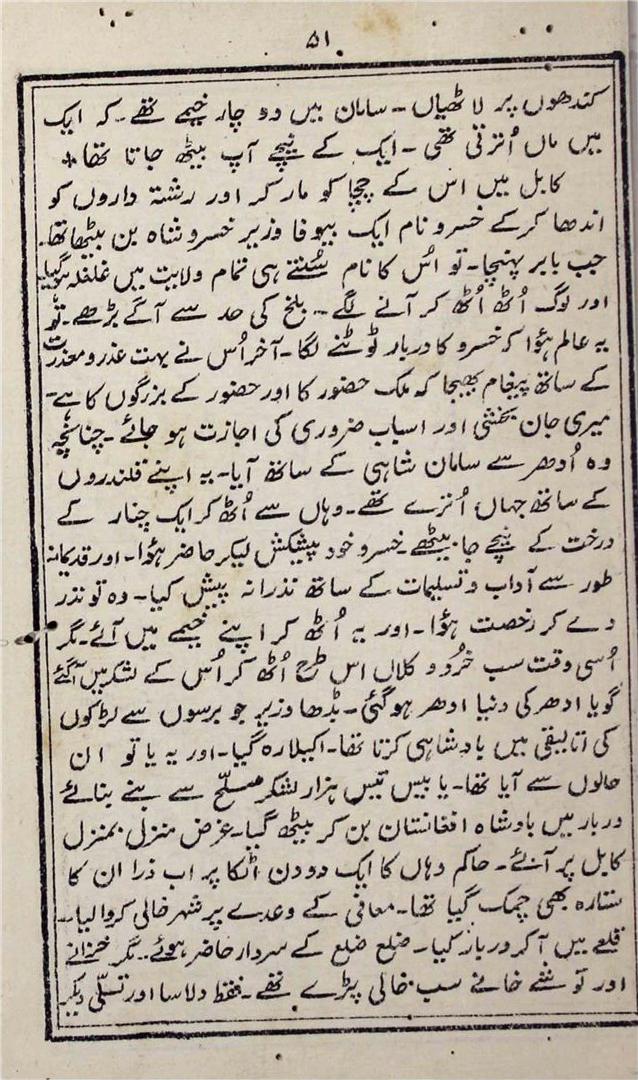 ۵۱
کندھوں پر لاٹھیاں ۔ سامان میں دو چار خیمے تھے ۔ کہ ایک
میں ماں اُترتی تھی ۔ ایک کے نیچے آپ بیٹھ جاتا تھا +
کابل میں اس کے چچا کو مار کر اور رشتہ داروں کو
اندھا کرکے خسرو نام ایک بیوفا وزیر خسرو شاہ بن بیٹھا تھا۔
جب بابر پہنچا ۔ تو اُس کا نام سُنتے ہی تمام ولایت میں غلغلہ ہوگیا۔
اور لوگ اُٹھ اُٹھ کر آنے لگے ۔ بلخ کی حد سے آگے بڑھے ۔ تو
یہ عالم ہؤا کہ خسرو کا دربار ٹوٹنے لگا ۔ آخر اُس نے بہت عذر و معذرت
کے ساتھ پیغام بھیجا کہ ملک حضور کا اور حضور کے بزرگوں کا ہے ۔
میری جان بخشی اور اسباب ضروری کی اجازت ہو جائے ۔ چنانچہ
وہ اُدھر سے سامان شاہی کے ساتھ آیا ۔ یہ اپنے قلندروں
کے ساتھ جہاں اُترے تھے ۔ وہاں سے اُٹھ کر ایک چنار کے
درخت کے نیچے جا بیٹھے خسرو خود پیشکش لیکر حاضر ہؤا ۔ اور قدیمانہ
طور سے آداب و تسلیمات کے ساتھ نذرانہ پیش کیا ۔ وہ تو نذر
دے کر رخصت ہؤا ۔ اور یہ اُٹھ کر اپنے خیمے میں آئے ۔ مگر
اُسی وقت سب خُرد و کلاں اس طرح اُٹھ کر اُس کے لشکر میں آگئے
گویا ادھر کی دنیا ادھر ہو گئی ۔ بڈھا وزیر جو برسوں سے لڑکوں
کی اتالیقی میں بادشاہی کرتا تھا ۔ اکیلا رہ گیا ۔ اور یہ یا تو ان
حالوں سے آیا تھا ۔ یا بیس تیس ہزار لشکر مسلّح سے بنے بنائے
دربار میں بادشاہ افغانستان بن کر بیٹھ گیا ۔ غرض منزل بمنزل
کابل پر آئے ۔ حاکم وہاں کا ایک دو دن اٹکا پر اب ذرا ان کا
ستارہ بھی چمک گیا تھا ۔ معافی کے وعدے پر شہر خالی کروا لیا ۔
قلعے میں آ کر دربار کیا ۔ ضلع ضلع کے سردار حاضر ہوئے ۔ مگر خزانے
اور توشے خانے سب خالی پڑے تھے ۔ فقط دلاسا اور تسلّی دیکر